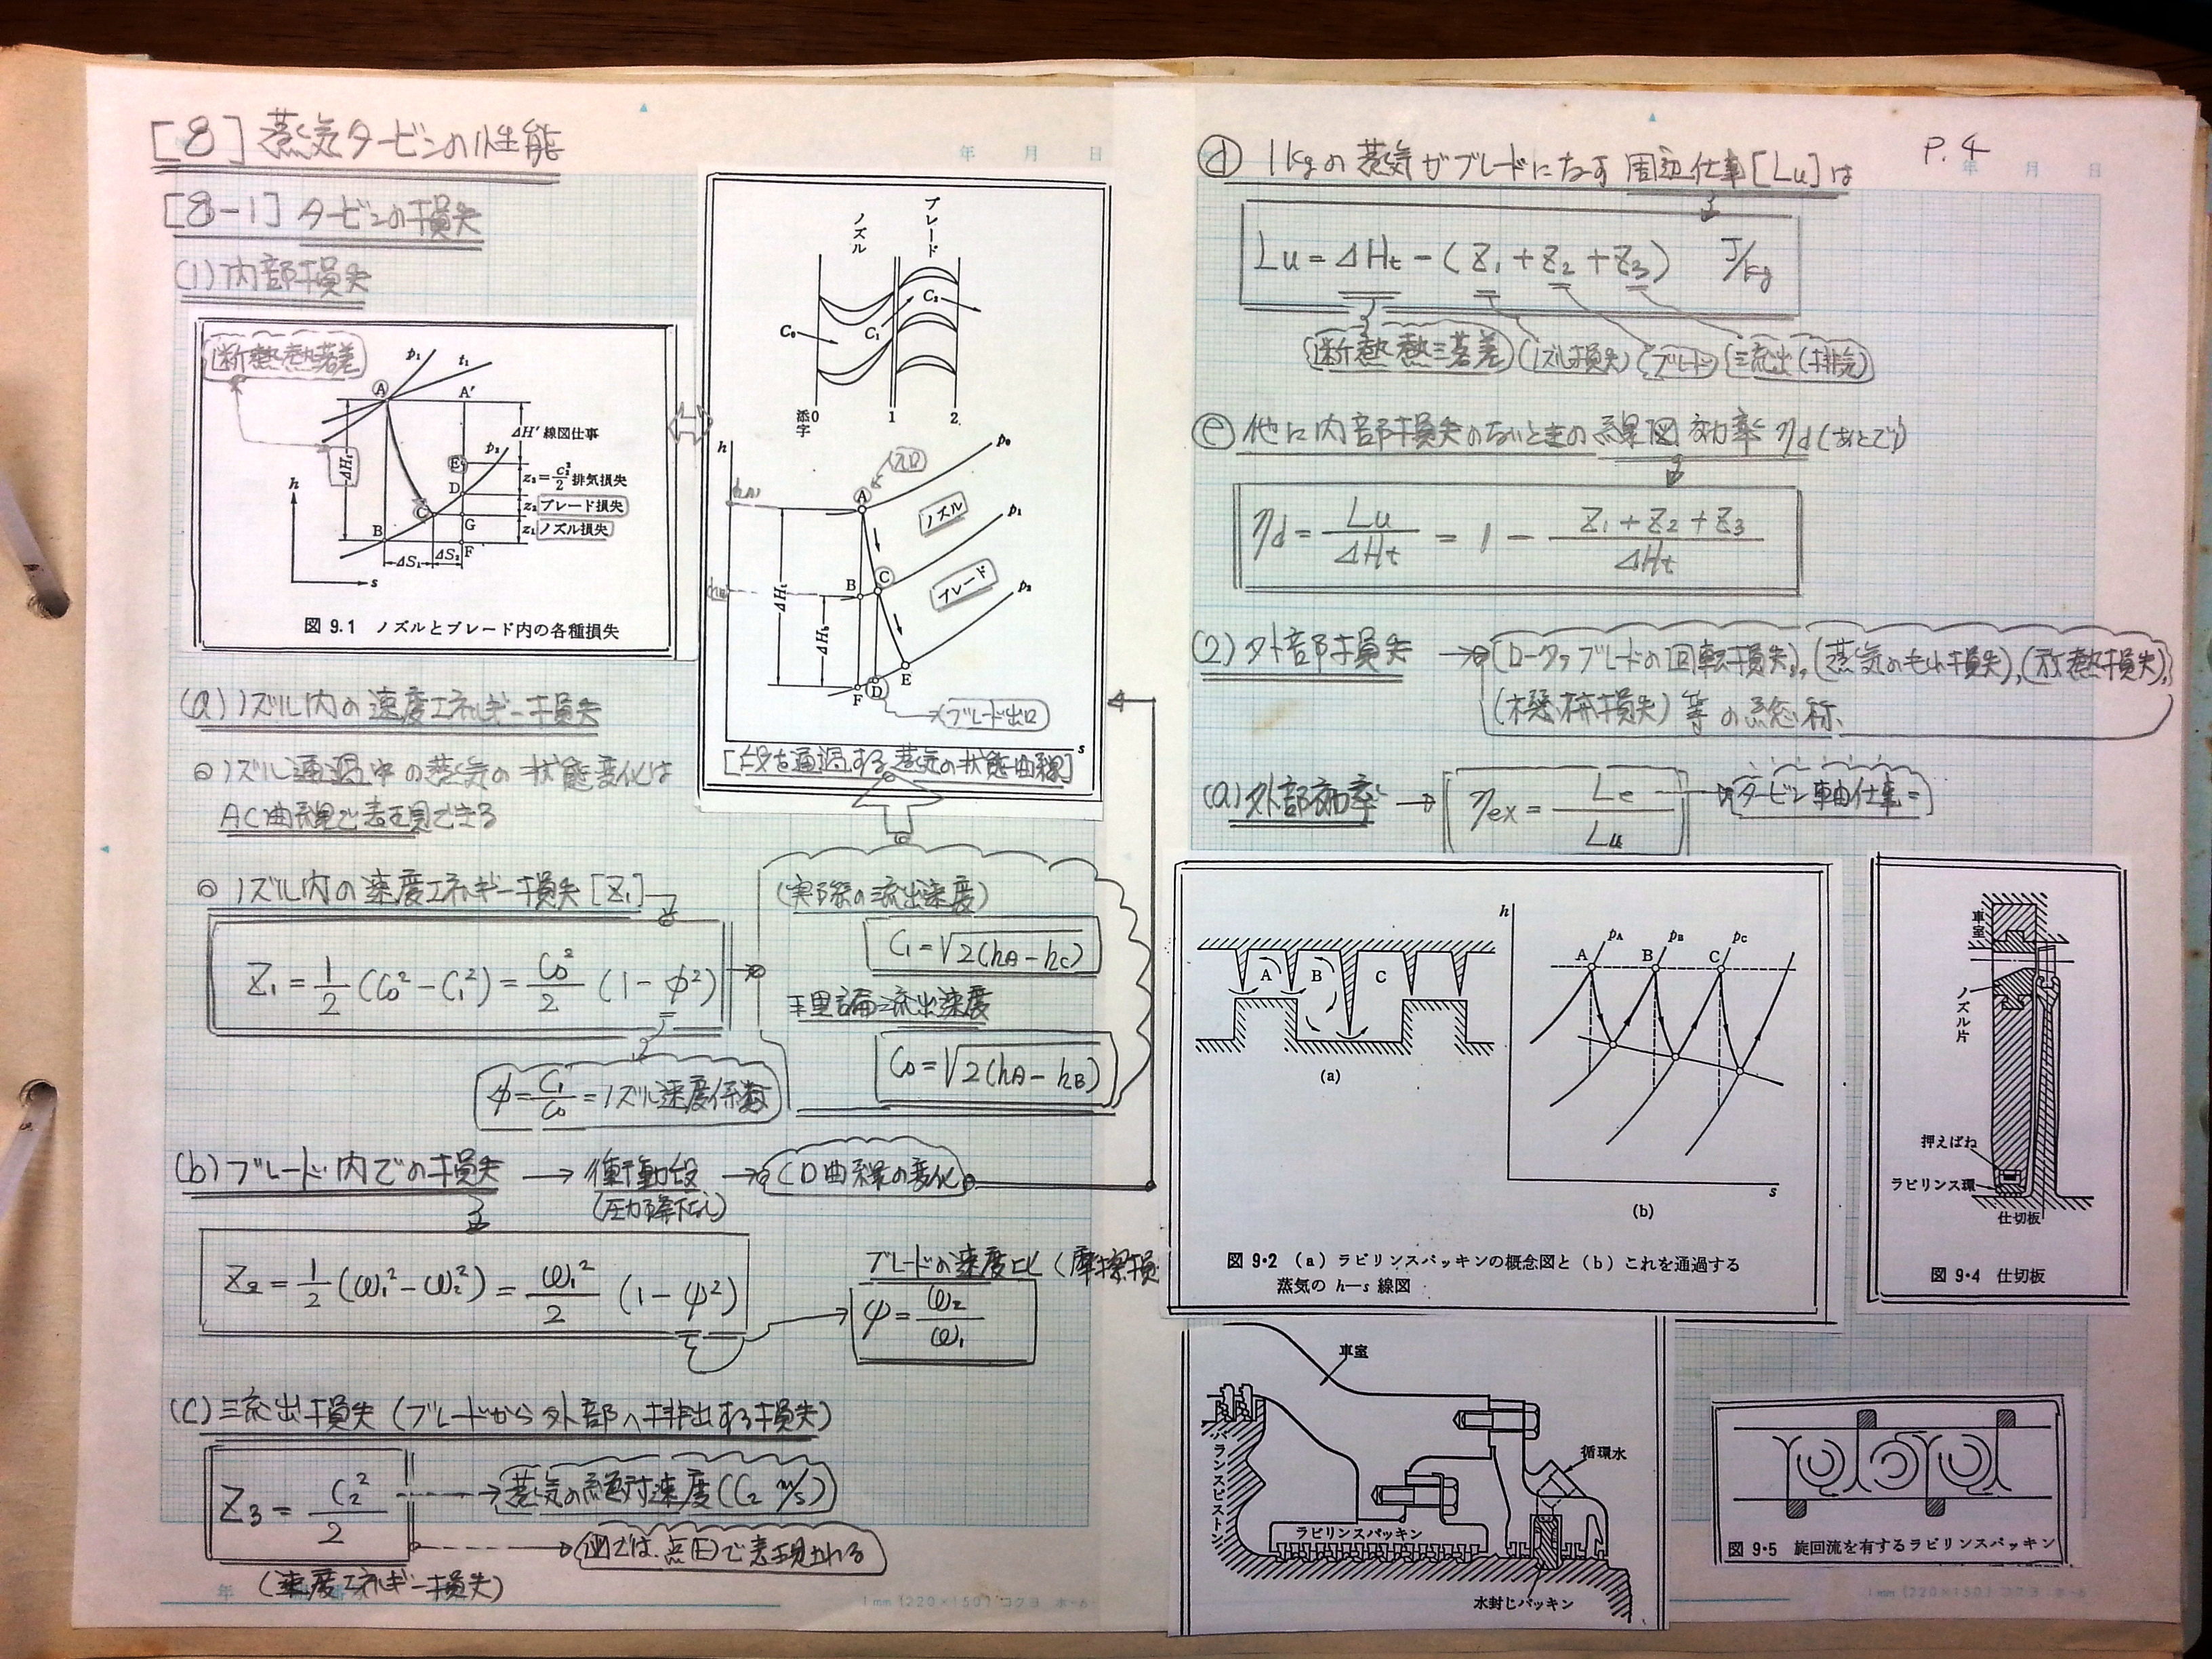 [8] 蒸気タービンの性能
[8-1] タービンの損失
(1) 内部損失
断熱熱落差
p₁
t₁
A
A'
ΔH' 線図仕事
p₂
E
z₃=c₂²/2 排気損失
D
z₂ ブレード損失
C
G
z₁ ノズル損失
B
F
ΔHt
ΔS₁
ΔS₂
h
s
図 9.1 ノズルとブレード内の各種損失
ノズル
ブレード
C₀
C₁
C₂
添字
0
1
2
h
p₀
入口
A
ノズル
p₁
B
C
ブレード
p₂
ΔHt
ΔHb
F
D
E
ブレード出口
s
[段を通過する蒸気の状態曲線]
(a) ノズル内の速度エネルギー損失
◎ ノズル通過中の蒸気の状態変化は
AC曲線で表現できる
◎ ノズル内の速度エネルギー損失[Z₁]
Z₁ = 1/2 (C₀² - C₁²) = C₀²/2 (1 - φ²)
φ = C₁/C₀ = ノズル速度係数
(実際の流出速度)
C₁ = √2(hA - hC)
理論流出速度
C₀ = √2(hA - hB)
(b) ブレード内での損失 → 衝動段 → CD曲線の変化
(圧力降下なし)
Z₂ = 1/2 (ω₁² - ω₂²) = ω₁²/2 (1 - ψ²)
ブレードの速度比 (摩擦損
ψ = ω₂/ω₁
(c) 流出損失 (ブレードから外部へ排出する損失)
Z₃ = C₂²/2
蒸気の絶対速度 (C₂ m/s)
図では点Eで表現される
(速度エネルギー損失)
年
1mm (220×150) コクヨ ホ-6
年 月 日
P.4
年 月 日
ⓓ 1kgの蒸気がブレードになす周辺仕事[Lu]は
Lu = ΔHt - (Z₁ + Z₂ + Z₃) J/kg
(断熱熱落差) (ノズル損失) (ブレード) (流出(排気))
ⓔ 他に内部損失のないときの線図効率 ηd (あとで)
ηd = Lu/ΔHt = 1 - (Z₁ + Z₂ + Z₃)/ΔHt
(2) 外部損失 → (ロータ,ブレードの回転損失), (蒸気のもれ損失), (放熱損失),
(機械損失) 等の総称
(a) 外部効率 → ηex = Le/Lu → タービン軸仕事
A
B
C
(a)
h
A
pA
B
pB
C
pC
s
(b)
図 9・2 (a) ラビリンスパッキンの概念図と (b) これを通過する
蒸気の h—s 線図
車室
ノズル片
押えばね
ラビリンス環
仕切板
図 9・4 仕切板
車室
バランスピストン
循環水
ラビリンスパッキン
水封じパッキン
図 9・5 旋回流を有するラビリンスパッキン
1mm (220×150) コクヨ ホ-6